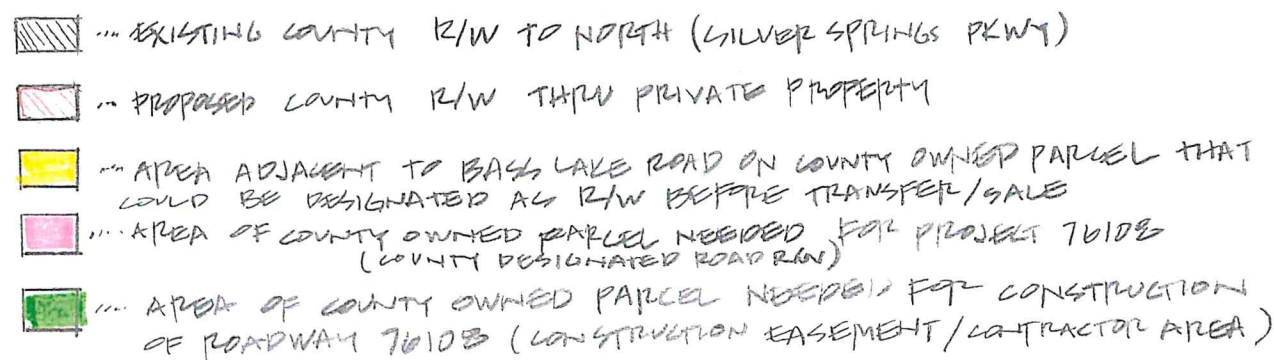 ... EXISTING COUNTY R/W TO NORTH (SILVER SPRINGS PKWY)
... PROPOSED COUNTY R/W THRU PRIVATE PROPERTY
... AREA ADJACENT TO BASS LAKE ROAD ON COUNTY OWNED PARCEL THAT
COULD BE DESIGNATED AS R/W BEFORE TRANSFER/SALE
.... AREA OF COUNTY OWNED PARCEL NEEDED FOR PROJECT 76108
(COUNTY DESIGNATED ROAD R/W)
.... AREA OF COUNTY OWNED PARCEL NEEDED FOR CONSTRUCTION
OF ROADWAY 76108 (CONSTRUCTION EASEMENT/CONTRACTOR AREA)